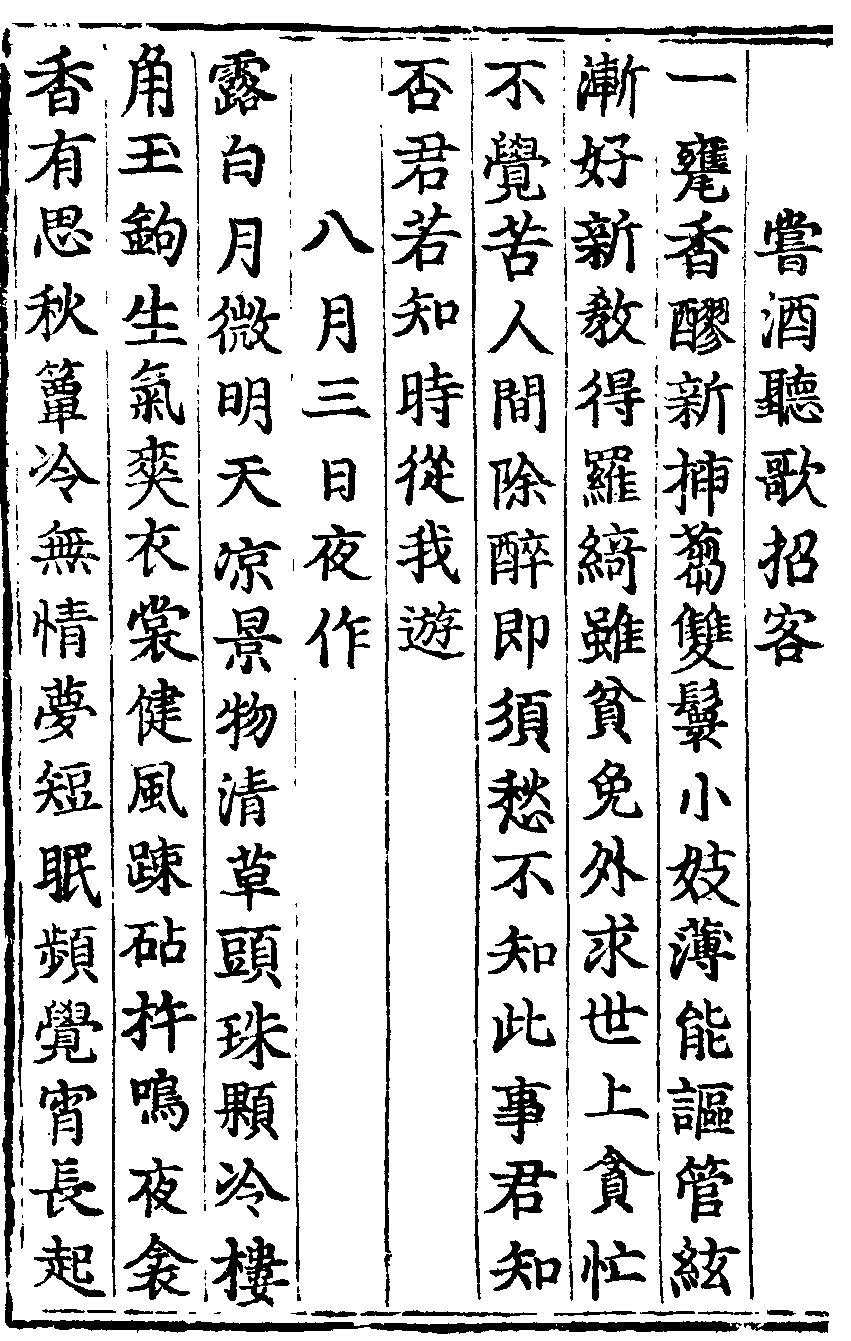 嘗酒聽歌招客
一甕香醪新揷蒭雙鬟小妓薄能謳管絃
漸好新教得羅綺雖貧免外求世上貪忙
不覺苦人間除醉即須愁不知此事君知
否君若知時從我遊
八月三日夜作
露白月微明天凉景物清草頭珠顆冷樓
角玉鉤生氣爽衣裳健風疎砧杵鳴夜衾
香有思秋簟冷無情夢短眠頻覺宵長起